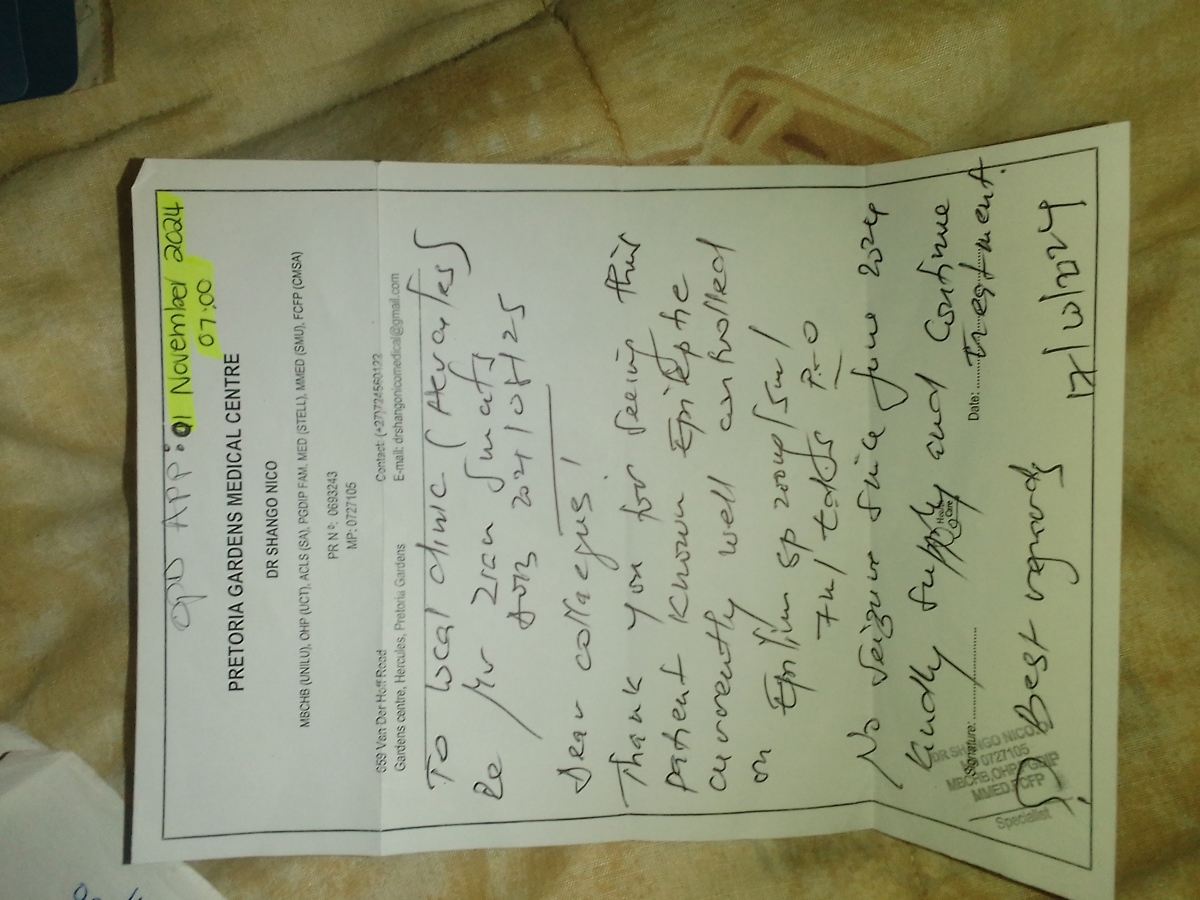 OPD APP: 01 November 2024
07:00
PRETORIA GARDENS MEDICAL CENTRE
DR SHANGO NICO
MBCHB (UNILU), OHP (UCT), ACLS (SA), PGDIP FAM. MED (STELL), MMED (SMU), FCFP (CMSA)
PR Nº: 0693243
MP: 0727105
659 Van Der Hoff Road
Gardens centre, Hercules, Pretoria Gardens
Contact: (+27)724560122
E-mail: drshangonicomedical@gmail.com
To local clinic (
Re Mr
DOB
Dear collaegus!
Thank you for seeing this
patient known Epileptic
currently well controlled
on
Epilim sp 200mg/5ml
7ml tds
No seizure since June 2024
kindly supply and continue
treatment.
Signature:
Date:
Best regards
17/10/2024
DR SHANGO NICO
MP 0727105
MBCHB, OHP, PGDIP
MMED, FCFP
Specialist